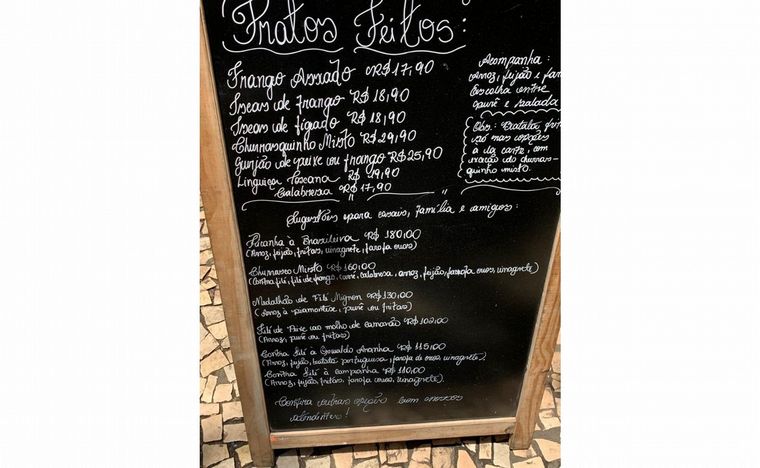 Pratos Feitos:
Frango Assado R$17,90
Iscas de frango R$18,90
Iscas de fígado R$18,90
Churrasquinho Misto R$29,90
Gurjão de peixe ou frango R$25,90
Linguiça Toscana R$ 19,90
" Calabresa R$ 17,90
Acompanha:
Arroz, feijão e far
Escolha entre
purê e salada
Obs.: Batata frit
só nas opções
à la carte, com
exceção do churras-
quinho misto.
Sugestões para casais, família e amigos:
Picanha à Brasileira R$ 180,00
(Arroz, feijão, fritas, vinagrete, farofa ovos)
Churrasco Misto R$160,00
(Contra filé, filé de frango, carré, calabresa, arroz, feijão, farofa ovos, vinagrete)
Medalhão de Filé Mignon R$130,00
(Arroz à piamontese, purê ou fritas)
Filé de Peixe ao molho de camarão R$ 102,00
(Arroz, purê ou fritas)
Contra filé à Oswaldo Aranha R$ 115,00
(Arroz, feijão, batata portuguesa, farofa de ovos, vinagrete).
Contra filé à campanha R$ 110,00
(Arroz, feijão, fritas, farofa ovos, vinagrete).
Confira outras opções com nossos
atendentes!